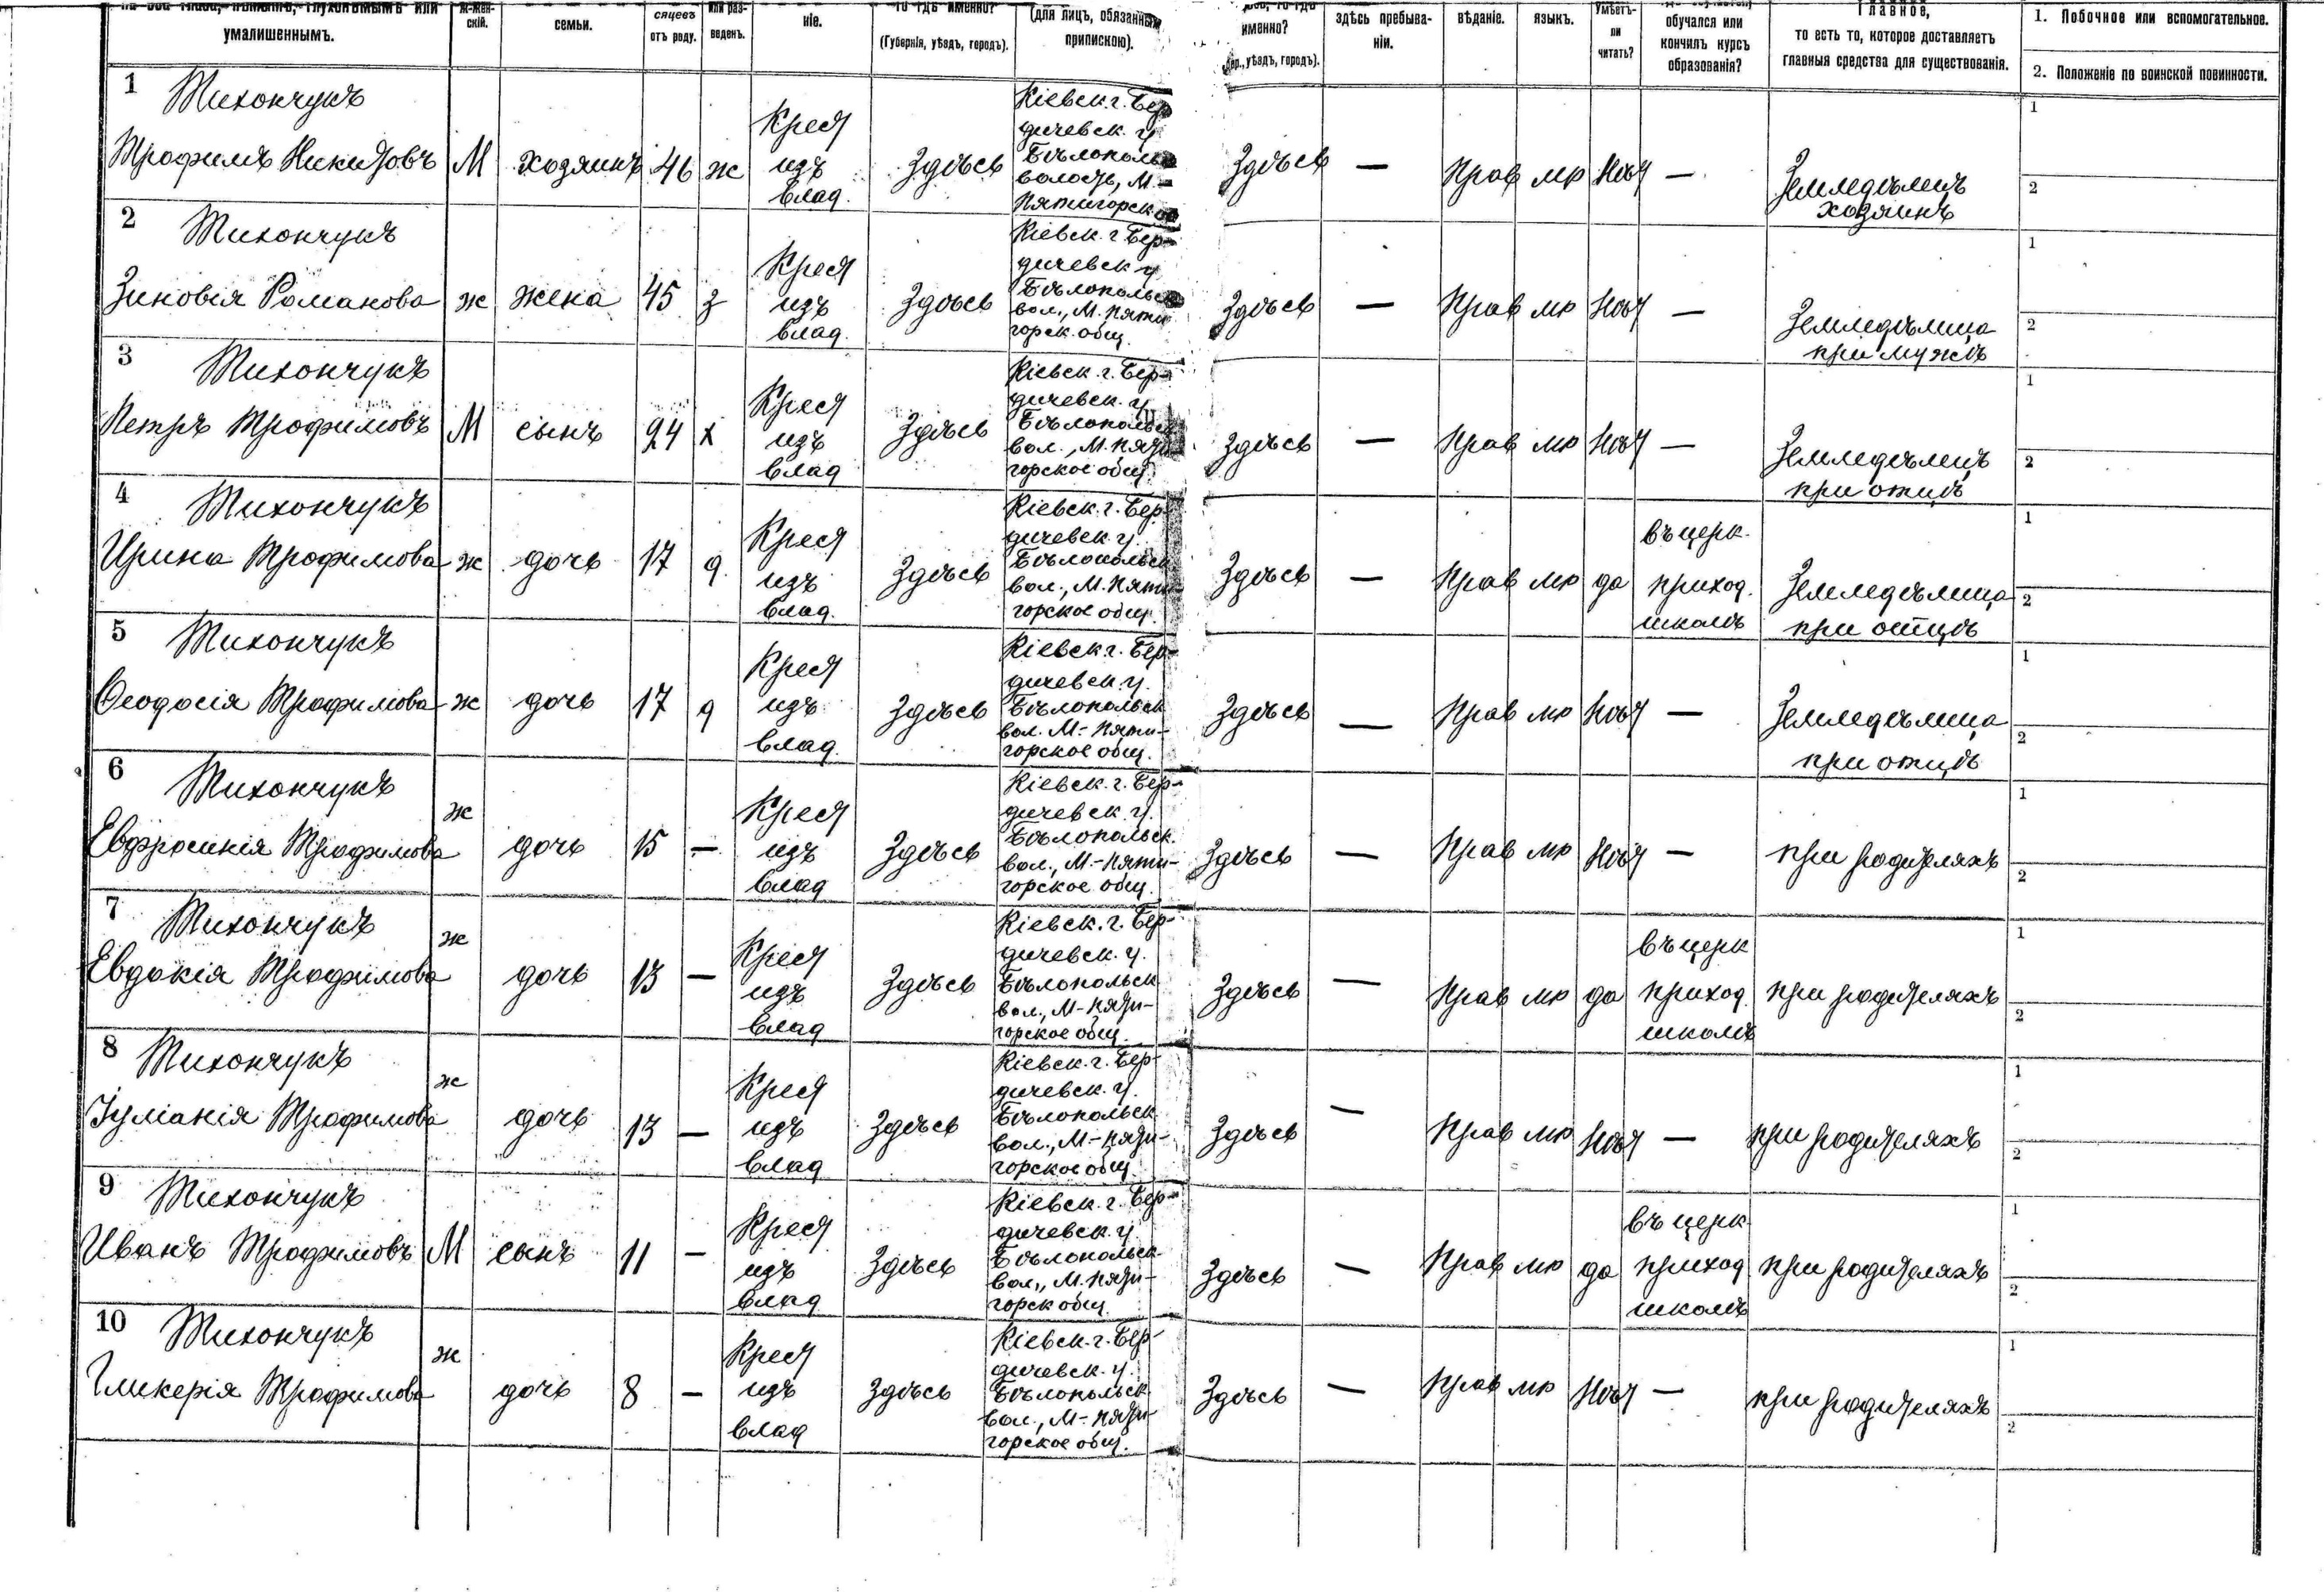 умалишеннымъ.
скій.
семьи.
отъ роду.
или раз-
веденъ.
ніе.
(Губернія, уѣздъ, городъ).
(для лицъ, обязанныхъ
припискою).
именно?
уѣздъ, городъ).
здѣсь пребыва-
ніи.
вѣданіе.
языкъ.
ли
читать?
обучался или
кончилъ курсъ
образованія?
Главное,
то есть то, которое доставляетъ
главныя средства для существованія.
1. Побочное или вспомогательное.
2. Положеніе по воинской повинности.
1 Тихончукъ
Трофимъ Никитовъ
М
хозяинъ
46
ж
Крест
изъ
влад.
Здѣсь
Кіевск. г. Бер-
дичевск. у.
Бѣлопольс
волость, М-
Пятигорское
Здѣсь
—
Прав
мр
Нѣт
—
Земледѣлецъ
хозяинъ
1
2
2 Тихончукъ
Зиновія Романова
ж
жена
45
з
Крест
изъ
влад.
Здѣсь
Кіевск. г. Бер-
дичевск у
Бѣлопольск
вол., М. Пяти
горск. общ.
Здѣсь
—
Прав
мр
Нѣт
—
Земледѣлица
при мужѣ
1
2
3 Тихончукъ
Петръ Трофимовъ
М
сынъ
24
х
Крест
изъ
влад
Здѣсь
Кіевск. г. Бер-
дичевск. у.
Бѣлопольск
вол., М. Пяти
горское общ.
Здѣсь
—
Прав
мр
Нѣт
—
Земледѣлецъ
при отцѣ
1
2
4 Тихончукъ
Ирина Трофимова
ж
дочь
17
д.
Крест
изъ
влад.
Здѣсь
Кіевск. г. Бер-
дичевск. у.
Бѣлопольск
вол., М. Пяти-
горское общ.
Здѣсь
—
Прав
мр
да
въ церк.
приход.
школѣ
Земледѣлица
при отцѣ
1
2
5 Тихончукъ
Ѳеодосія Трофимова
ж
дочь
17
д
Крест
изъ
влад.
Здѣсь
Кіевск г. Бер-
дичевск. у.
Бѣлопольск
вол. М-Пяти-
горское общ.
Здѣсь
—
Прав
мр
Нѣт
—
Земледѣлица
при отцѣ
1
2
6 Тихончукъ
Евфросинія Трофимова
ж
дочь
15
—
Крест
изъ
влад
Здѣсь
Кіевск. г. Бер-
дичевск у.
Бѣлопольск.
вол., М-Пяти-
горское общ.
Здѣсь
—
Прав
мр
Нѣт
—
при родителяхъ
1
2
7 Тихончукъ
Евдокія Трофимова
ж
дочь
13
—
Крест
изъ
влад
Здѣсь
Кіевск. г. Бер-
дичевск. у.
Бѣлопольск
вол., М-Пяти-
горское общ.
Здѣсь
—
Прав
мр
да
въ церк
приход.
школѣ
при родителяхъ
1
2
8 Тихончукъ
Іуліанія Трофимова
ж
дочь
13
—
Крест
изъ
влад
Здѣсь
Кіевск. г. Бер-
дичевск. у.
Бѣлопольск
вол., М-Пяти-
горское общ.
Здѣсь
—
Прав
мр
Нѣт
—
при родителяхъ
1
2
9 Тихончукъ
Иванъ Трофимовъ
М
сынъ
11
—
Крест
изъ
влад
Здѣсь
Кіевск. г. Бер-
дичевск. у.
Бѣлопольск
вол., М. Пяти-
горск общ.
Здѣсь
—
Прав
мр
да
въ церк
приход
школѣ
при родителяхъ
1
2
10 Тихончукъ
Гликерія Трофимова
ж
дочь
8
—
Крест
изъ
влад
Здѣсь
Кіевск. г. Бер-
дичевск. у.
Бѣлопольск
вол., М-Пяти-
горское общ.
Здѣсь
—
Прав
мр
Нѣт
—
при родителяхъ
1
2